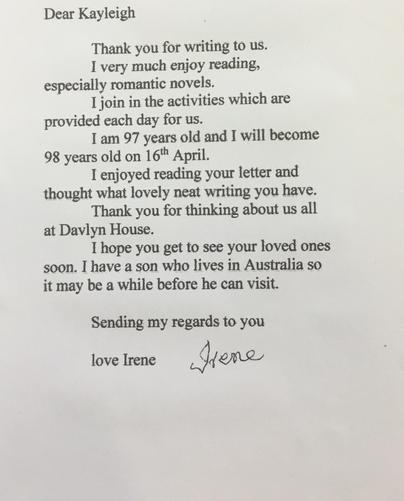 Dear Kayleigh
Thank you for writing to us.
I very much enjoy reading,
especially romantic novels.
I join in the activities which are
provided each day for us.
I am 97 years old and I will become
98 years old on 16th April.
I enjoyed reading your letter and
thought what lovely neat writing you have.
Thank you for thinking about us all
at Davlyn House.
I hope you get to see your loved ones
soon. I have a son who lives in Australia so
it may be a while before he can visit.
Sending my regards to you
love Irene Irene